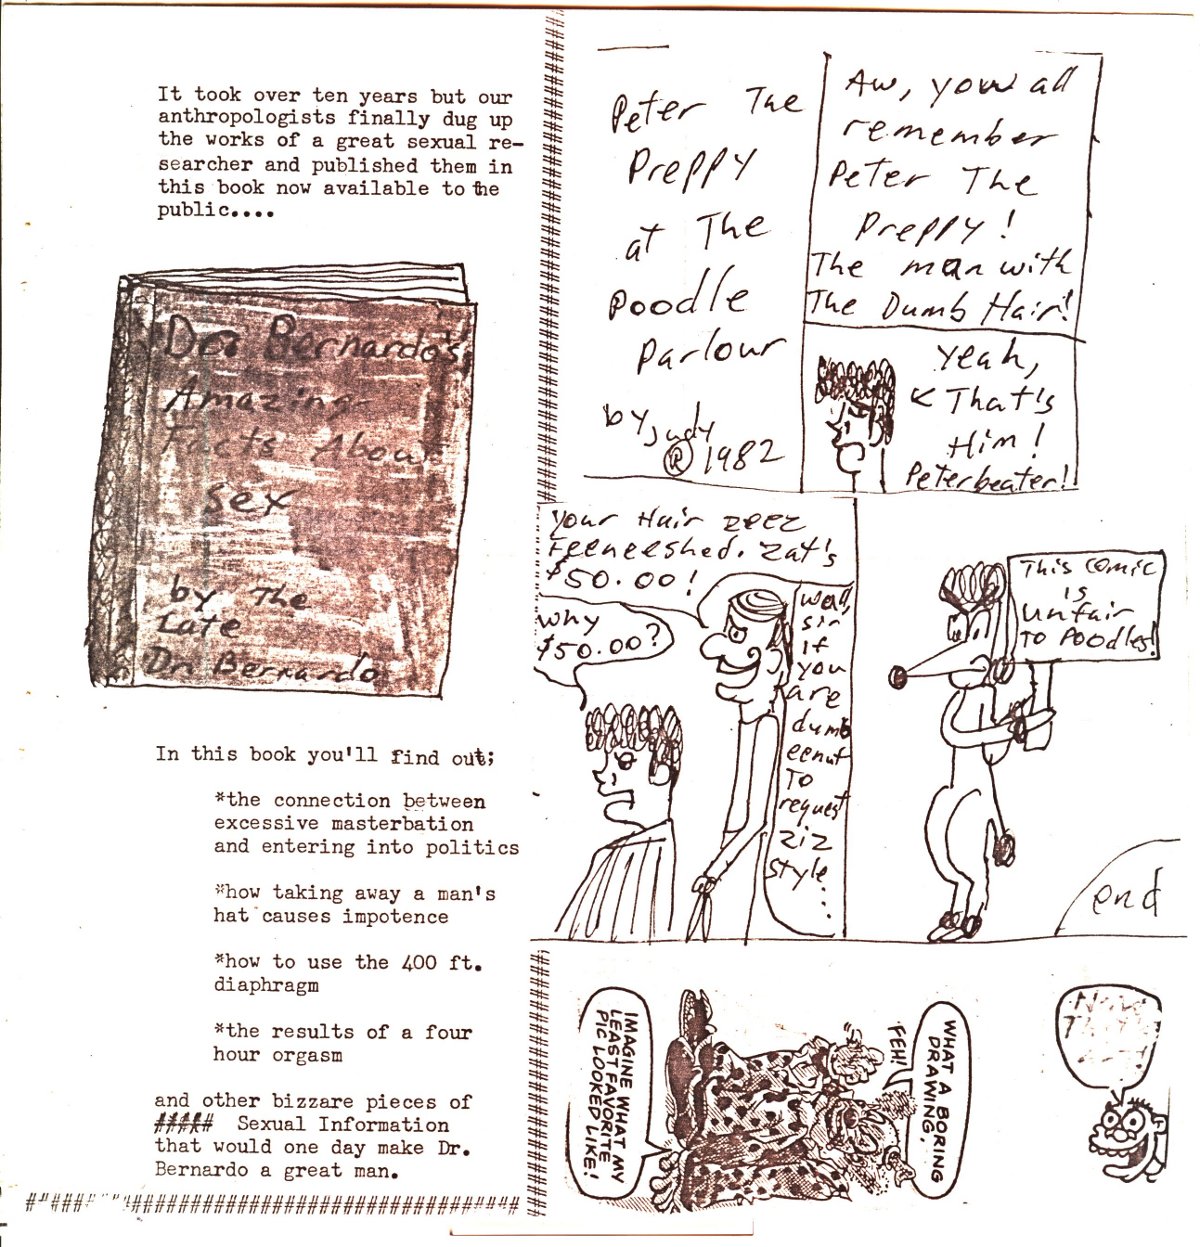 It took over ten years but our
anthropologists finally dug up
the works of a great sexual re-
searcher and published them in
this book now available to the
public....
Dr. Bernardo's
Amazing
Facts About
Sex
by The
Late
Dr. Bernardo
In this book you'll find out;
*the connection between
excessive masterbation
and entering into politics
*how taking away a man's
hat causes impotence
*how to use the 400 ft.
diaphragm
*the results of a four
hour orgasm
and other bizzare pieces of
##### Sexual Information
that would one day make Dr.
Bernardo a great man.
Peter The
Preppy
at The
Poodle
Parlour
by Judy
® 1982
Aw, you all
remember
Peter The
Preppy!
The man with
The Dumb Hair!
Yeah,
That's
Him!
Peterbeater!!
Your Hair zeez
Feeneeshed. Zat's
$50.00!
Why
$50.00?
Wall,
sir
if
you
are
dumb
eenuf
To
request
ziz
style....
This comic
is
unfair
To Poodles!
end
WHAT A BORING
DRAWING,
FEH!
IMAGINE WHAT MY
LEAST FAVORITE
PIC LOOKED LIKE!